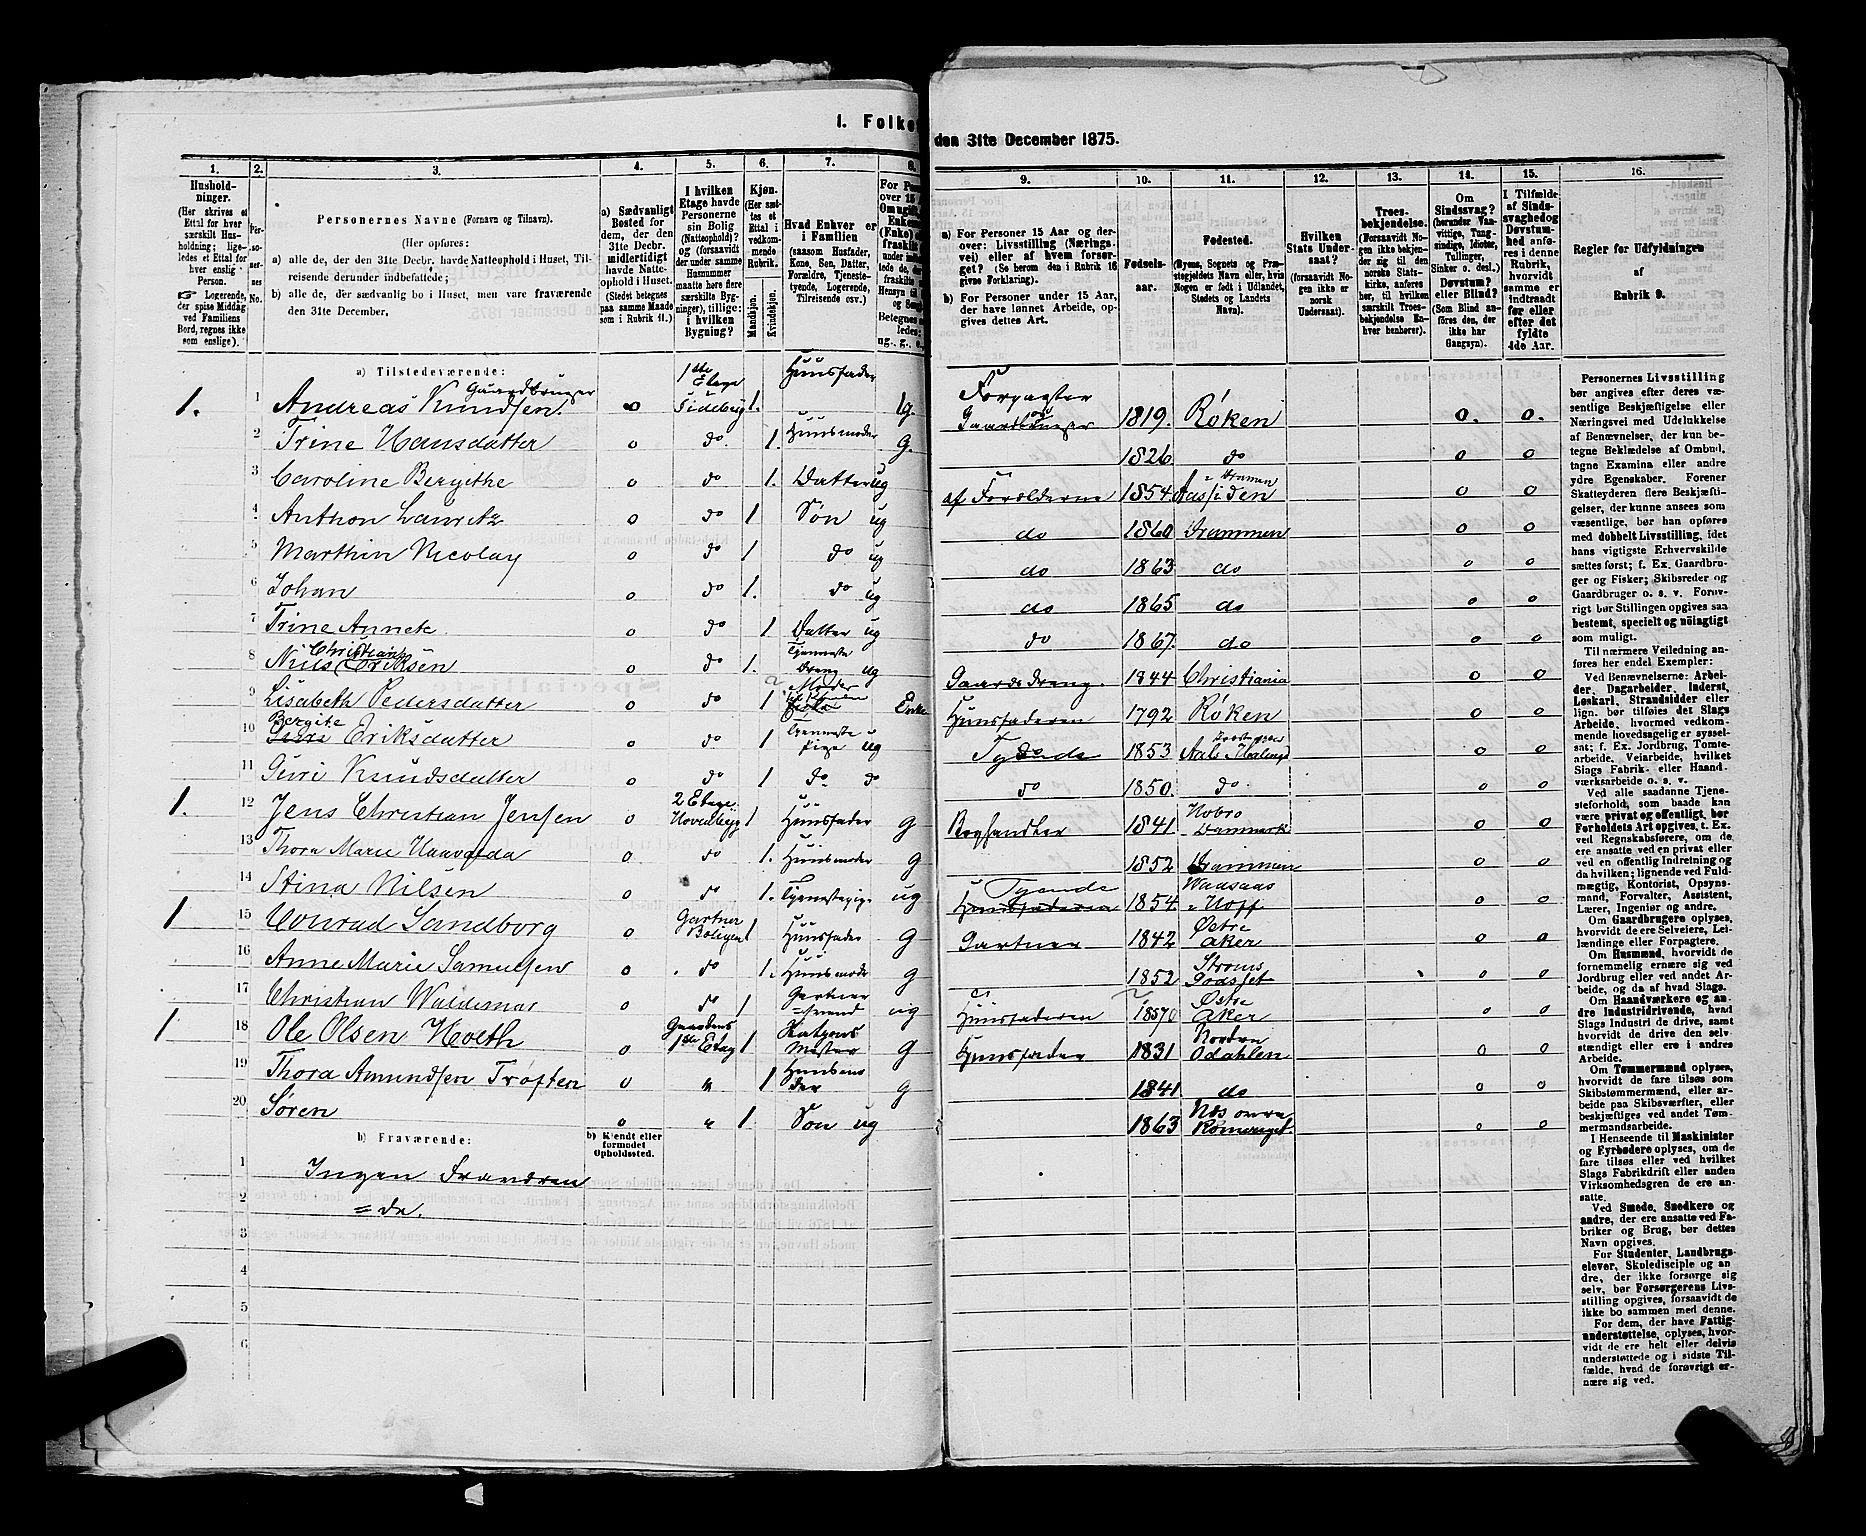 1. Folke den 31te December 1875.
1. 2. 3. 4. 5. 6. 7. 8. 9. 10. 11. 12. 13. 14. 15. 16.
Hushold-
ninger.
(Her skrives et
Ettal for hver
særskilt Hus-
holdning; lige-
ledes et Ettal
for hver
enslig
Person.
Logerende,
der spise Middag
ved Familiens
Bord, regnes ikke
som enslige).
Per-
so-
ner-
nes
No.
Personernes Navne (Fornavn og Tilnavn).
(Her opføres:
a) alle de, der den 31te Decbr. havde Natteophold i Huset, Til-
reisende derunder indbefattede;
b) alle de, der sædvanlig bo i Huset, men vare fraværende
den 31te December.
a) Sædvanligt
Bosted for
dem, der den
31te Decbr.
midlertidigt
havde Natte-
ophold i Huset.
(Stedet betegnes
paa samme Maade
som i Rubrik 11.)
I hvilken
Etage havde
Personerne
sin Bolig
(Natteophold)?
(forsaavidt der
under samme
Husnummer
maatte høre flere
særskilte Byg-
ninger), tillige:
i hvilken
Bygning?
Kjøn.
(Her sæt-
tes et
Ettal i
vedkom-
mende
Rubrik.
Mandkjøn.
Kvindekjøn.
Hvad Enhver er
i Familien
(saasom Husfader,
Kone, Søn, Datter,
Forældre, Tjeneste-
tyende, Logerende,
Tilreisende osv.)
a) For Personer 15 Aar og der-
over: Livsstilling (Nærings-
vei) eller af hvem forsør-
get? (Se herom den i Rubrik 16
givne Forklaring).
b) For Personer under 15 Aar,
der have lønnet Arbeide, op-
gives dettes Art.
Fødsels-
aar.
Fødested.
(Byens, Sognets og Præ-
stegjeldets Navn eller, hvis
Nogen er født i Udlandet,
Stedets og Landets
Navn).
Hvilken
Stats Under-
saat?
(forsaavidt No-
gen ikke er
norsk
Undersaat).
Troes-
bekjendelse.
(Forsaavidt No-
gen ikke bekjen-
der sig til den
norske Stats-
kirke, anføres
her, til hvilken
særskilt Troes-
bekjendelse En-
hver henhører).
Om
Sindssvag?
(herunder Van-
vittige, Tung-
sindige, Idioter,
Tullinger,
Sinker o. desl.)
Døvstum?
eller Blind?
(Som Blind an-
føres den, der
ikke har
Gangsyn).
I Tilfælde
af Sinds-
svaghed og
Døvstum-
hed anfø-
res i denne
Rubrik,
hvorvidt
samme er
indtraadt
før eller
efter det
fyldte
4de Aar.
Regler for Udfyldningen
af
Rubrik 9.
a) Tilstedeværende:
1. 1 Andreas Knudsen. Gaardbruger o 1ste Etage Sidebyg 1. Huusfader g. Forpagter og Gaardbruger 1819. Røken o. o.
2 Trine Hansdatter o do. 1. Huusmoder g. 1826 do o o
3 Caroline Bergithe o do 1. Datter ug af Forældrene 1854 Aassiden = Dramen o o
4 Anthon Lauritz o do 1 Søn ug do 1860 Drammen o o
5 Marthin Nicolay o do 1 do ug do 1863 do o o
6 Johan o do 1. do ug do 1865 do o o
7 Trine Annete. o do 1 Datter ug do 1867. do o o
8 Nius Christians Eriksen o do 1. Tjenneste Dreng ug Gaards Dreng. 1844 Christiania o o
9 Lisabeth Pedersdatter o do 1 Moder Enke Huusfaderen 1792 Røken o o
10 Bergite Eriksdatter o do 1 Tjenneste pige ug Tyende 1853 Aals i Hallings o o
11 Guri Knudsdatter o do 1 do do do 1850. do. o o
1. 12 Jens Christian Jensen o 2 Etage Hovedbyg 1 Huusfader g Boghandler 1841 Hobro Danmark o o
13 Thora Marie o. do 1. Huusmoder g 1852 Drammen o o
14 Stina Nilsen o do 1. Tjenestepige ug Tyende Huusfaderen 1854 = Hoff o o
1 15 Conrad Sandborg o Gartner Boligen 1 Huusfader g Gartner 1842 Østre Aker o o
16 Anne Marie Samuelsen o do 1. Huusmoder g 1852 Strøms Godsset o o
17 Christian Waldemar o do 1 Gartner = svend ug Huusfaderen Østre Aker o o
1 18 Ole Olsen Hoeth o Gaardens 1ste Etag 1 Mester g Huusfader 1831 Nordre Odahlen o o
19 Thora Amundsen Trøften o " 1 g 1841 do o o
20 Søren o " 1 Søn ug 1863 Næs øvre Romeriget. o o
b) Fraværende:
b) Kjendt eller
formodet
Opholdssted.
1 Ingen Fraværen
2 = de.
3
4
5
6
Personernes Livsstilling
bør angives efter deres væ-
sentlige Beskjæftigelse eller
Næringsvei med Udelukkelse
af Benævnelser, der kun be-
tegne Beklædelse af Ombud,
tagne Examina eller andre
ydre Egenskaber. Forener
Skatteyderen flere Beskjæfti-
gelser, der kunne ansees som
væsentlige, bør han opføres
med dobbelt Livsstilling, idet
hans vigtigste Erhvervskilde
sættes først; f. Ex. Gaardbru-
ger og Fisker; Skibsreder og
Gaardbruger o. s. v. Forøv-
rigt bør Stillingen opgives saa
bestemt, specielt og nøiagtigt
som muligt.
Til nærmere Veiledning an-
føres her endel Exempler:
Ved Benævnelserne: Arbei-
der, Dagarbeider, Inderst,
Løskarl, Strandsidder eller
lign. bør tilføies det Slags
Arbeide, hvormed vedkom-
mende hovedsagelig er syssel-
sat; f. Ex. Jordbrug, Tomte-
arbeide, Veiarbeide, hvilket
Slags Fabrik- eller Haand-
værksarbeide o. s. v.
Ved alle saadanne Tjene-
steforhold, som baade kan
være privat og offentligt, bør
Forholdets Art opgives, t. Ex.
ved Regnskabsførere, om de
ere ansatte ved en privat eller
ved en offentlig Indretning og
da hvilken; lignende ved Fuld-
mægtig, Kontorist, Opsyns-
mand, Forvalter, Assistent,
Lærer, Ingeniør og andre.
Om Gaardbrugere oplyses,
hvorvidt de ere Selveiere, Lei-
lændinge eller Forpagtere.
Om Husmænd, hvorvidt de
fornemmelig ernære sig ved
Jordbrug eller ved andet Ar-
beide, og da af hvad Slags.
Om Haandværkere og an-
dre Industridrivende, hvad
Slags Industri de drive, samt
hvorvidt de drive den selv-
stændigt eller ere i andres
Arbeide.
Om Tømmermænd oplyses,
hvorvidt de fare tilsøs som
Skibstømmermænd, eller ar-
beide paa Skibsværfter, eller
beskjæftiges ved andet Tøm-
mermandsarbeide.
I Henseende til Maskinister
og Fyrbødere oplyses, om de
fare tilsøs eller ved hvilket
Slags Fabrikdrift eller anden
Virksomhedsgren de ere an-
satte.
Ved Smede, Snedkere og
andre, der ere ansatte ved Fa-
briker og Brug, bør dettes
Navn opgives.
For Studenter, Landbrugs-
elever, Skoledisciple og an-
dre, der ikke forsørge sig
selv, bør Forsørgerens Livs-
stilling opgives, forsaavidt de
ikke bo sammen med denne.
For dem, der have Fattig-
understøttelse, oplyses, hvor-
vidt de ere helt eller delvis
understøttede og i sidste Til-
fælde, hvad de forøvrigt er-
nære sig ved.